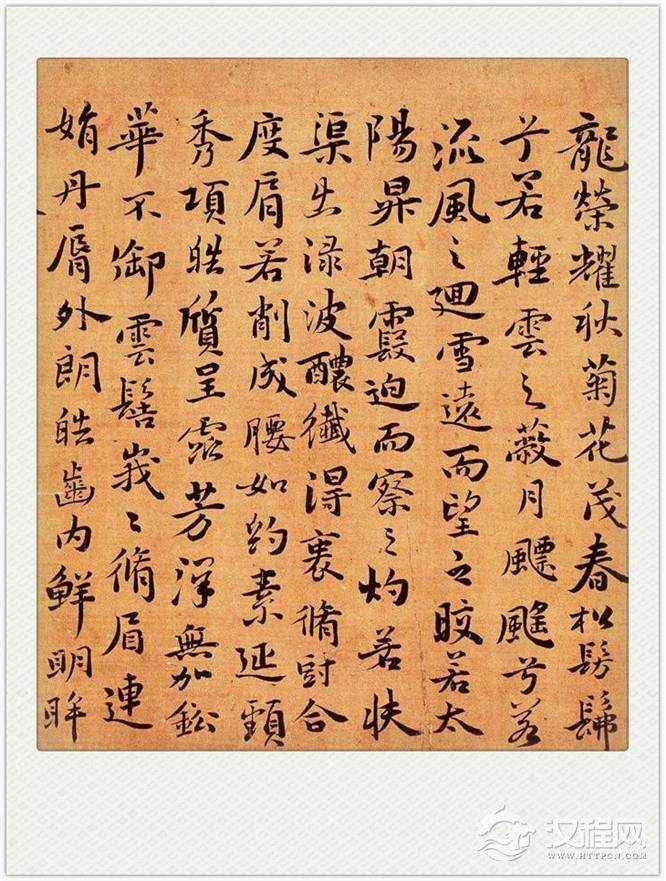 龍榮耀秋菊花茂春松髣髴
兮若輕雲之蔽月飄颻兮若
流風之廻雪遠而望之皎若太
陽昇朝霞迫而察之灼若扶
渠出渌波醲纖得衷脩短合
度肩若削成腰如約素延頸
秀項皓質呈露芳澤無加鉛
華不御雲髻峩〻脩眉連
娟丹脣外朗皓齒内鮮明眸
汉程网
WWW.HTTPCN.COM